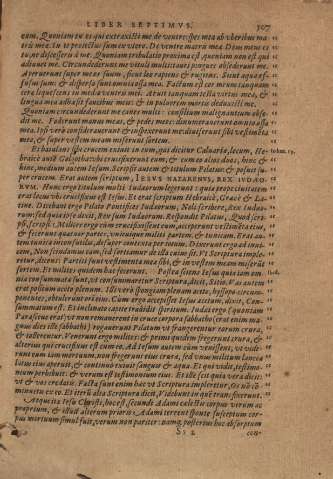 LIBER SEPTIMVS. 307
eam. Quoniam tu es qui extraxisti me de ventre: spes mea ab vberibus ma-
tris meæ. In te proiectus sum ex vtero. De ventre matris meæ Deus meus es
tu, ne discesseris à me. Quoniam tribulatio proxima est quoniam non est qui
adiuuet me. Circundederunt me vituli multi: tauri pingues obsederunt me.
Aperuerunt super me os suum, sicut leo rapiens & rugiens. Sicut aqua ef-
fusus sum: & dispersa sunt omnia ossa mea. Factum est cor meum tanquam
cera liquescens in medio ventris mei. Aruit tanquam testa virtus mea, &
lingua mea adhæsit faucibus meis: & in puluerem mortis deduxisti me.
Quoniam circundederunt me canes multi: consilium malignantium obse-
dit me. Foderunt manus meas, & pedes meos: dinumerauerunt omnia ossa
mea. Ipsi verò considerauerunt & inspexerunt me: diuiserunt sibi vestimenta
mea, & super vestem meam miserunt sortem.
Et baiulans sibi crucem exiuit in eum, qui dicitur Caluariæ, locum, He-
braicè autē Golgotha: vbi crucifixerunt eum, & cum eo alios duos, hinc &
hinc, medium autem Iesum. Scripsit autem & titulum Pilatus: & posuit su-
per crucem. Erat autem scriptum, IESVS NAZARENVS, REX IVDÆO-
RVM. Hunc ergo titulum multi Iudæorum legerunt: quia prope ciuitatem
erat locus vbi crucifixus est Iesus. Et erat scriptum Hebraicè, Græcè & La-
tinè. Dicebant ergo Pilato Pontifices Iudæorum, Noli scribere, Rex Iudæo-
rum: sed quia ipse dixit, Rex sum Iudæorum. Respondit Pilatus, Quod scrip-
si, scripsi. Milites ergo cum crucifixissent eum, acceperunt vestimenta eius,
& fecerunt quatuor partes, vnicuique militi partem, & tunicam. Erat au-
tem tunica inconsutilis, desuper contexta per totum. Dixerunt ergo ad inui-
cem, Non scindamus eam, sed sortiamur de illa cuius sit. Vt Scriptura imple-
retur, dicens: Partiti sunt vestimenta mea sibi, & in vestem meam miserūt
sortem. Et milites quidem hæc fecerunt. Postea sciens Iesus quia iam om-
nia consummata sunt, vt consummaretur Scriptura, dixit, Sitio. Vas autem
erat positum aceto plenum. Illi verò spongiam plenam aceto, hyssopo circum-
ponentes, obtulerunt ori eius. Cum ergo accepisset Iesus acetum, dixit, Con-
summatum est. Et inclinato capite tradidit spiritum. Iudæi ergo (quoniam
Parasceue erat) vt non remanerent in cruce corpora sabbatho (erat enim ma-
gnus dies ille sabbathi) rogauerunt Pilatum vt frangerentur eorum crura,
& tollerentur. Venerunt ergo milites: & primi quidem fregerunt crura, &
alterius qui crucifixus est cum eo. Ad Iesum autem cùm venissent, vt vide-
runt eum iam mortuum, non fregerunt eius crura, sed vnus militum lancea
latus eius aperuit, & continuò exiuit sanguis & aqua. Et qui vidit, testimo-
nium perhibuit: & verum est testimonium eius. Et ille scit quia vera dicit:
vt & vos credatis. Facta sunt enim hæc vt Scriptura impleretur, Os nō cō-
minuetis ex eo. Et iterū alia Scriptura dicit, Videbunt in quē transfixerunt.
Atque ita Iesu Christi, hoc est, secundi Adami cælestis corpus verum ac
proprium, & istud alterum prioris Adami terreni sponte susceptum cor-
pus mortuum simul fuit, verùm non pariter: namq; posterius hoc absorptum
Ss 2 con-
Iohan. 19.